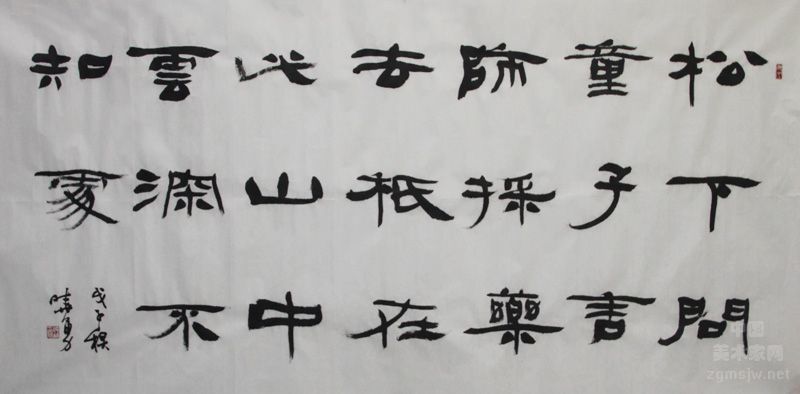 松下問
童子言
師採藥
去祇在
此山中
雲深不
知處
戊子秋
曉勇
中国
美术家网
zgmsjw.net